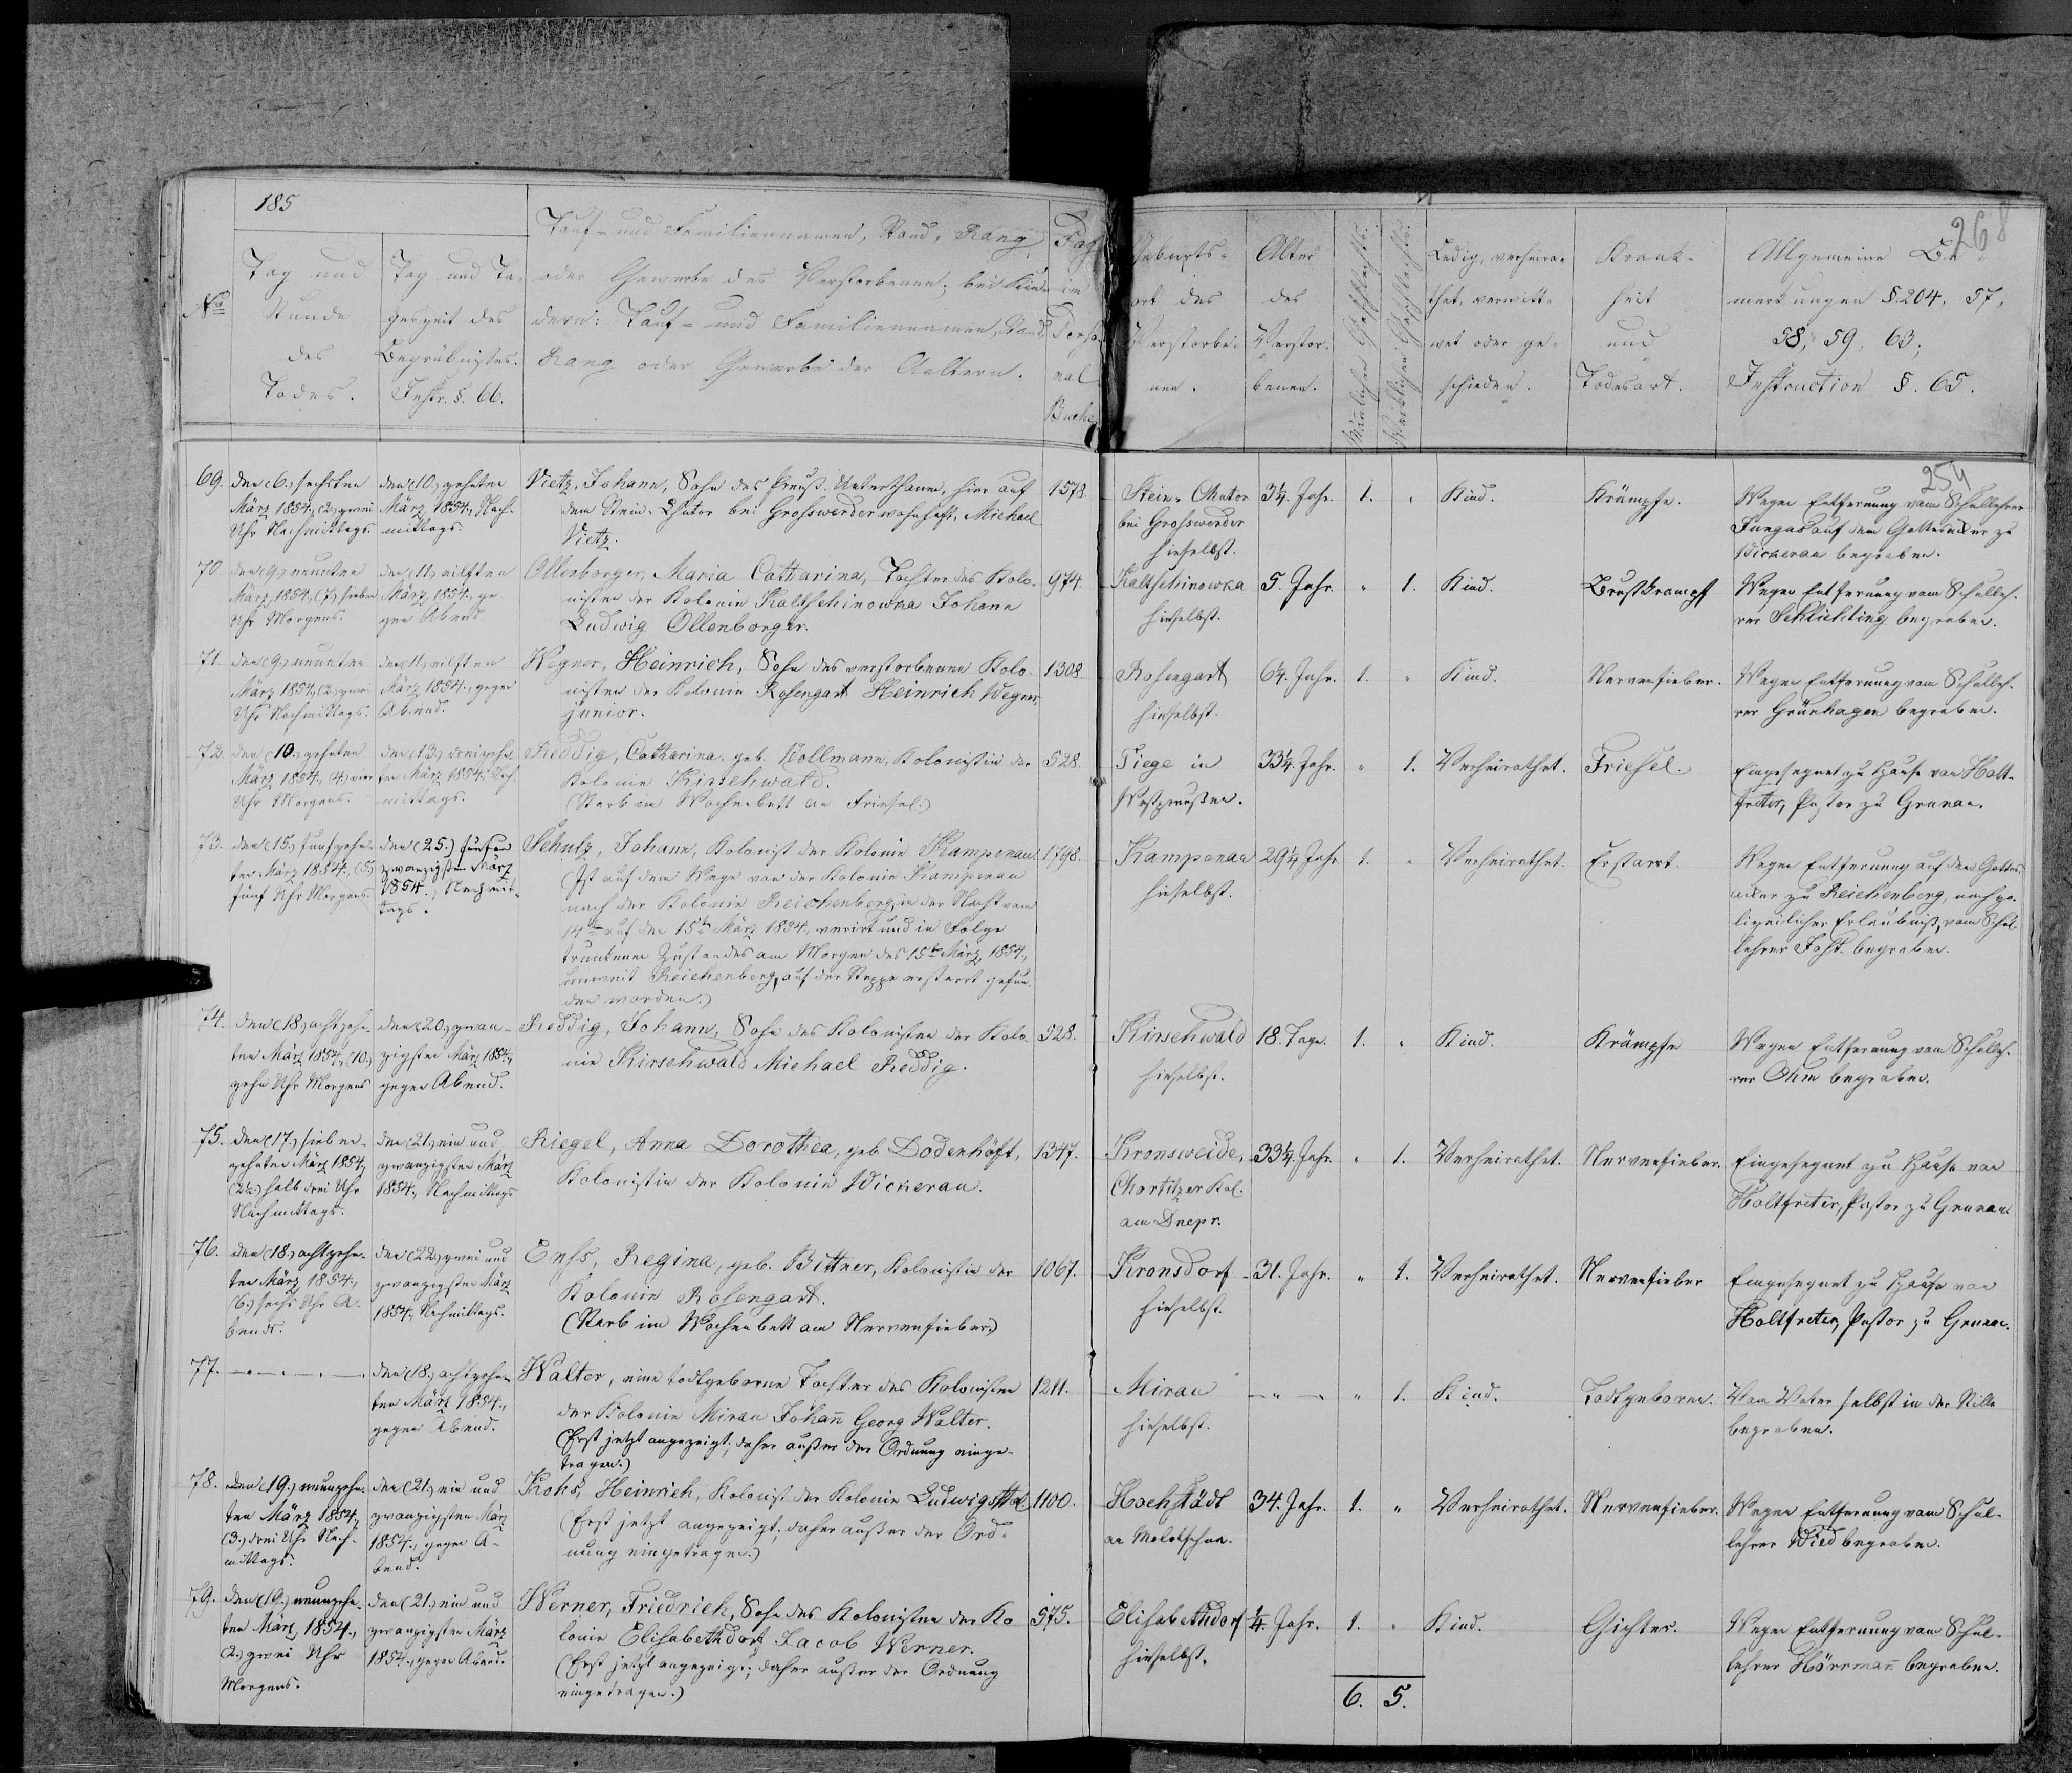 185
268
No
Tag und
Stunde
des
Todes.
Tag und Ta-
geszeit des
Begräbnisses.
Instr. §. 66.
Tauf- und Familiennamen, Stand, Rang
oder Gewerbe des Verstorbenen; bei Kin-
dern: Tauf- und Familiennamen, Stand,
Rang oder Gewerbe der Aeltern.
Pag
im
Perso-
nal
Buche
Geburts-
ort des
Verstorbe-
nen.
Alter
des
Verstor-
benen.
Männlichen Geschlechts.
Weiblichen Geschlechts.
Ledig, verheira-
thet, verwitt-
wet oder ge-
schieden.
Krank-
heit
und
Todesart.
Allgemeine Be-
merkungen §. 204, 57,
58, 59, 63;
Instruction §. 65.
254
69. den (6.) sechsten
März 1854., (2.) zwei
Uhr Nachmittags.
den (10.) zehnten
März, 1854., Nach-
mittags.
Vietz, Johann, Sohn des Preuß. Unterthanen, hier auf
dem Stein-Chutor bei Grosswerder wohnhaft, Michael
Vietz.
1578.
Stein-Chutor
bei Grosswerder
hieselbst.
3¼. Jahr. 1. " Kind. Krämpfe.
Wegen Entfernung vom Schullehrer
Fungas auf dem Gottesacker zu
Wickerau begraben.
70. den (9.) neunten
März, 1854., (7.) sieben
Uhr Morgens.
den (11.) eilften
März, 1854., ge-
gen Abend.
Ollenborger, Maria Catharina, Tochter des Kolo-
nisten der Kolonie Kaltschinowka Johann
Ludwig Ollenborger.
974.
Kaltschinowka
hieselbst.
5. Jahr. " 1. Kind. Brustkrampf
Wegen Entfernung vom Schulleh-
rer Schlichting begraben.
71. den (9.) neunten
März 1854., (2.) zwei
Uhr Nachmittags.
den (11.) eilften
März 1854., gegen
Abend.
Wegner, Heinrich, Sohn des verstorbenen Kolo-
nisten der Kolonie Rosengart Heinrich Wegner,
junior.
1308.
Rosengart
hieselbst.
6¼. Jahr. 1. " Kind. Nervenfieber.
Wegen Entfernung vom Schulleh-
rer Grünhagen begraben.
72. den (10.) zehnten
März 1854., (4.) vier
Uhr Morgens.
den (13.) dreizehn-
ten März 1854., Nach-
mittags.
Reddig, Catharina, geb. Kollmann, Kolonistin der
Kolonie Kirschwald.
(Starb im Wochenbett an Friesel.)
528.
Tiege in
Westpreußen.
33¼. Jahr. " 1. Verheirathet. Friesel.
Eingesegnet zu Hause von Holt-
freter, Pastor zu Grunau.
73. den (15.) fünfzehn-
ten März 1854., (5.)
fünf Uhr Morgens.
den (25.) fünf und
zwanzigsten März
1854., Nachmit-
tags.
Schulz, Johann, Kolonist der Kolonie Kampenau.
(Ist auf dem Wege von der Kolonie Kampenau
nach der Kolonie Reichenberg, in der Nacht vom
14ten auf den 15ten März 1854., verirrt und in Folge
trunkenen Zustandes am Morgen des 15ten März, 1854.,
unweit Reichenberg, auf der Steppe erstarrt gefun-
den worden.)
1798.
Kampenau
hieselbst.
29¼ Jahr 1. " Verheirathet. Erstarrt.
Wegen Entfernung auf dem Gottes-
acker zu Reichenberg, nach po-
lizeilicher Erlaubniß, vom Schul-
lehrer Joht. begraben.
74. den (18.) achtzehn-
ten März 1854., (10.)
zehn Uhr Morgens
den (20.) zwan-
zigsten März 1854.,
gegen Abend.
Reddig, Johann, Sohn des Kolonisten der Kolo-
nie Kirschwald Michael Reddig.
528.
Kirschwald
hieselbst.
18. Tage. 1. " Kind. Krämpfe
Wegen Entfernung vom Schulleh-
rer Ohm begraben.
75. den (17.) sieben-
zehnten März 1854.,
(2½.) halb drei Uhr
Nachmittags.
den (21.) ein und
zwanzigsten März
1854., Nachmittags
Riegel, Anna Dorothea, geb. Dodenhöft,
Kolonistin der Kolonie Wickerau.
1347.
Kronsweide,
Chortitzer Kol.
am Dnepr.
33¼. Jahr. " 1. Verheirathet. Nervenfieber.
Eingesegnet zu Hause von
Holtfreter, Pastor zu Grunau.
76. den (18.) achtzehn-
ten März 1854.,
(6.) sechs Uhr A-
bends.
den (22.) zwei und
zwanzigsten März
1854., Nachmittags.
Enss, Regina, geb. Bittner, Kolonistin der
Kolonie Rosengart.
(Starb im Wochenbett am Nervenfieber.)
1067.
Kronsdorf
hieselbst.
31. Jahr. " 1. Verheirathet. Nervenfieber
Eingesegnet zu Hause von
Holtfreter, Pastor zu Grunau.
77. — " — " —
den (18.) achtzehn-
ten März 1854.,
gegen Abend.
Walter, eine todtgeborne Tochter des Kolonisten
der Kolonie Mirau Johann Georg Walter.
(Erst jetzt angezeigt; daher außer der Ordnung einge-
tragen.)
1211.
Mirau
hieselbst.
— " — " 1. Kind. Todtgeboren.
Vom Vater selbst in der Stille
begraben.
78. den (19.) neunzehn-
ten März 1854.,
(3.) drei Uhr Nach-
mittags.
den (21.) ein und
zwanzigsten März
1854., gegen A-
bend.
Krohs, Heinrich, Kolonist der Kolonie Ludwigsthal
(Erst jetzt angezeigt; daher außer der Ord-
nung eingetragen.)
1100.
Hochstädt
an Molotschna.
34. Jahr. 1. " Verheirathet. Nervenfieber.
Wegen Entfernung vom Schul-
lehrer Wied begraben.
79. den (19.) neunzehn-
ten März, 1854.,
(2.) zwei Uhr
Morgens.
den (21.) ein und
zwanzigsten März
1854., gegen Abend.
Werner, Friedrich, Sohn des Kolonisten der Ko-
lonie Elisabethdorf Jacob Werner.
(Erst jetzt angezeigt; daher außer der Ordnung
eingetragen.)
575.
Elisabethdorf
hieselbst.
¼. Jahr. 1. " Kind. Gichter.
Wegen Entfernung vom Schul-
lehrer Hörrmann begraben.
6. 5.